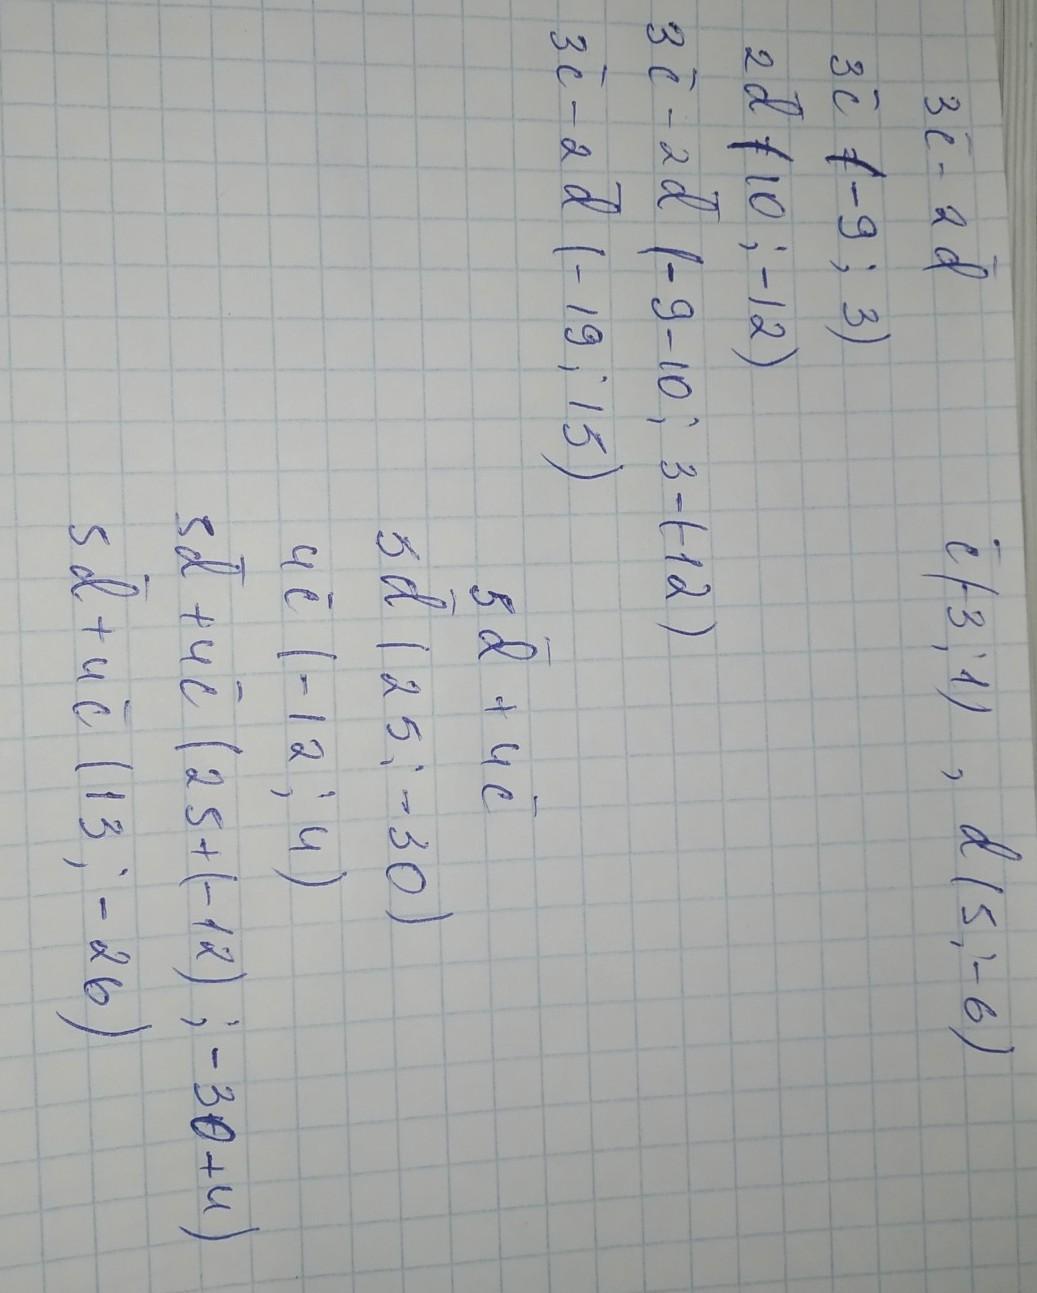 c̄(-3; 1) , d(5; -6)
3c̄ - 2d̄
3c̄ (-9; 3)
2d̄ (10; -12)
3c̄ - 2d̄ (-9-10; 3-(-12)
3c̄ - 2d̄ (-19; 15)
5d̄ + 4c̄
5d̄ (25; -30)
4c̄ (-12; 4)
5d̄ + 4c̄ (25+(-12) ; -30+4)
5d̄ + 4c̄ (13; -26)